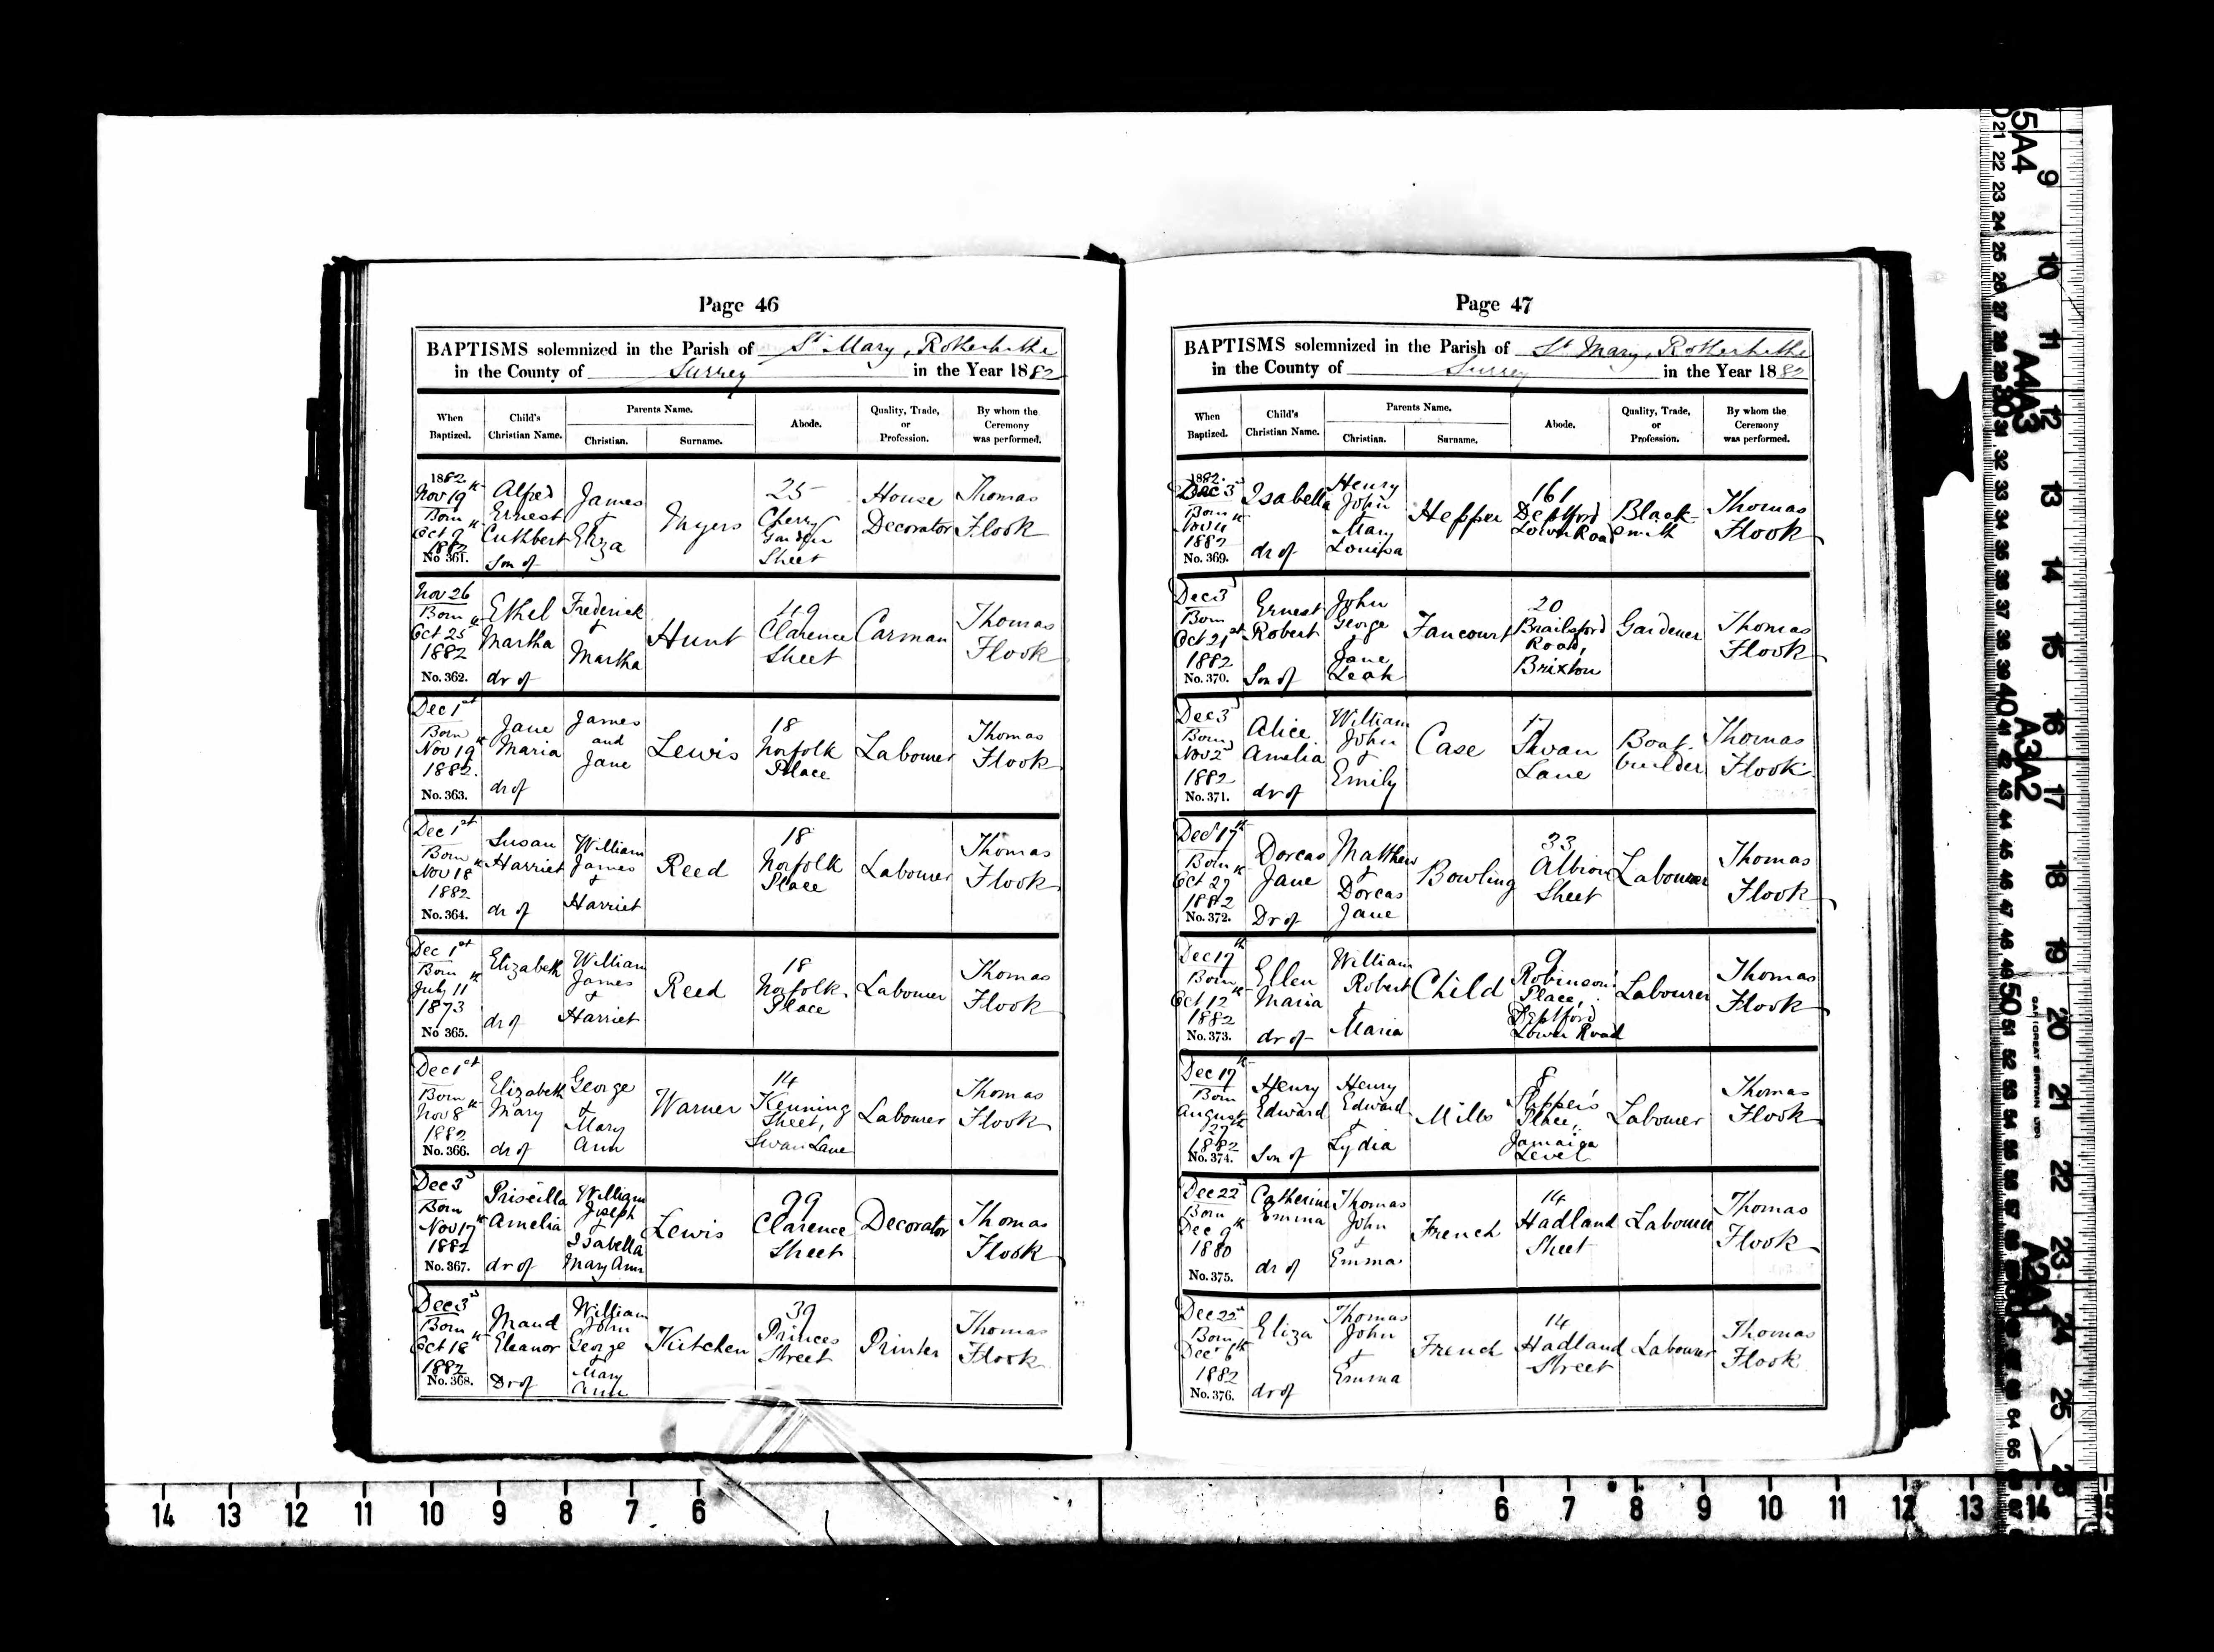 Page 46
BAPTISMS solemnized in the Parish of St Mary, Rotherhithe
in the County of Surrey in the Year 1882
When Baptized. Child's Christian Name. Parents Name. Christian. Surname. Abode. Quality, Trade, or Profession. By whom the Ceremony was performed.
1882 Nov 19th Born Oct 9th 1882 No 361. Alfred Ernest Cuthbert Son of James + Eliza Myers 25 Cherry Garden Street House Decorator Thomas Flook
Nov 26 Born Oct 25th 1882 No. 362. Ethel Martha dr of Frederick + Martha Hunt 49 Clarence Street Carman Thomas Flook
Dec 1st Born Nov 19th 1882. No. 363. Jane Maria dr of James and Jane Lewis 18 Norfolk Place Labourer Thomas Flook
Dec 1st Born Nov 18th 1882 No. 364. Susan Harriet dr of William James + Harriet Reed 18 Norfolk Place Labourer Thomas Flook
Dec 1st Born July 11th 1873 No 365. Elizabeth dr of William James + Harriet Reed 18 Norfolk Place Labourer Thomas Flook
Dec 1st Born Nov 8th 1882 No. 366. Elizabeth Mary dr of George + Mary Ann Warner 14 Kenning Street, Swan Lane Labourer Thomas Flook
Dec 3d Born Nov 17th 1882 No. 367. Priscilla Amelia dr of William Joseph + Isabella Mary Ann Lewis 99 Clarence Street Decorator Thomas Flook
Dec 3d Born Oct 18th 1882 No. 368. Maud Eleanor Dr of William John George + Mary Ann Kitchen 39 Princes Street Printer Thomas Flook
Page 47
BAPTISMS solemnized in the Parish of St Mary, Rotherhithe
in the County of Surrey in the Year 1882
When Baptized. Child's Christian Name. Parents Name. Christian. Surname. Abode. Quality, Trade, or Profession. By whom the Ceremony was performed.
1882. Dec 3d Born Nov 4th 1882 No. 369. Isabella dr of Henry John + Mary Louisa Hepper 161 Deptford Lower Road Blacksmith Thomas Flook
Dec 3d Born Oct 21st 1882 No. 370. Ernest Robert Son of John George + Jane Leah Fancourt 20 Brailsford Road, Brixton Gardener Thomas Flook
Dec 3d Born Nov 2d 1882 No. 371. Alice Amelia dr of William John + Emily Case 17 Swan Lane Boat-builder Thomas Flook
Dec 17th Born Oct 27th 1882 No. 372. Dorcas Jane Dr of Matthew + Dorcas Jane Bowling 33 Albion Street Labourer Thomas Flook
Dec 17th Born Oct 12th 1882 No. 373. Ellen Maria dr of William Robert + Maria Child 9 Robinson's Place, Deptford Lower Road Labourer Thomas Flook
Dec 17th Born August 27th 1882 No. 374. Henry Edward Son of Henry Edward + Lydia Mills 8 Place, Jamaica Level Labourer Thomas Flook
Dec 22d Born Dec 9th 1880 No. 375. Catherine Emma dr of Thomas John + Emma French 14 Hadland Street Labourer Thomas Flook
Dec 22d Born Dec 6th 1882 No. 376. Eliza dr of Thomas John + Emma French 14 Hadland Street Labourer Thomas Flook